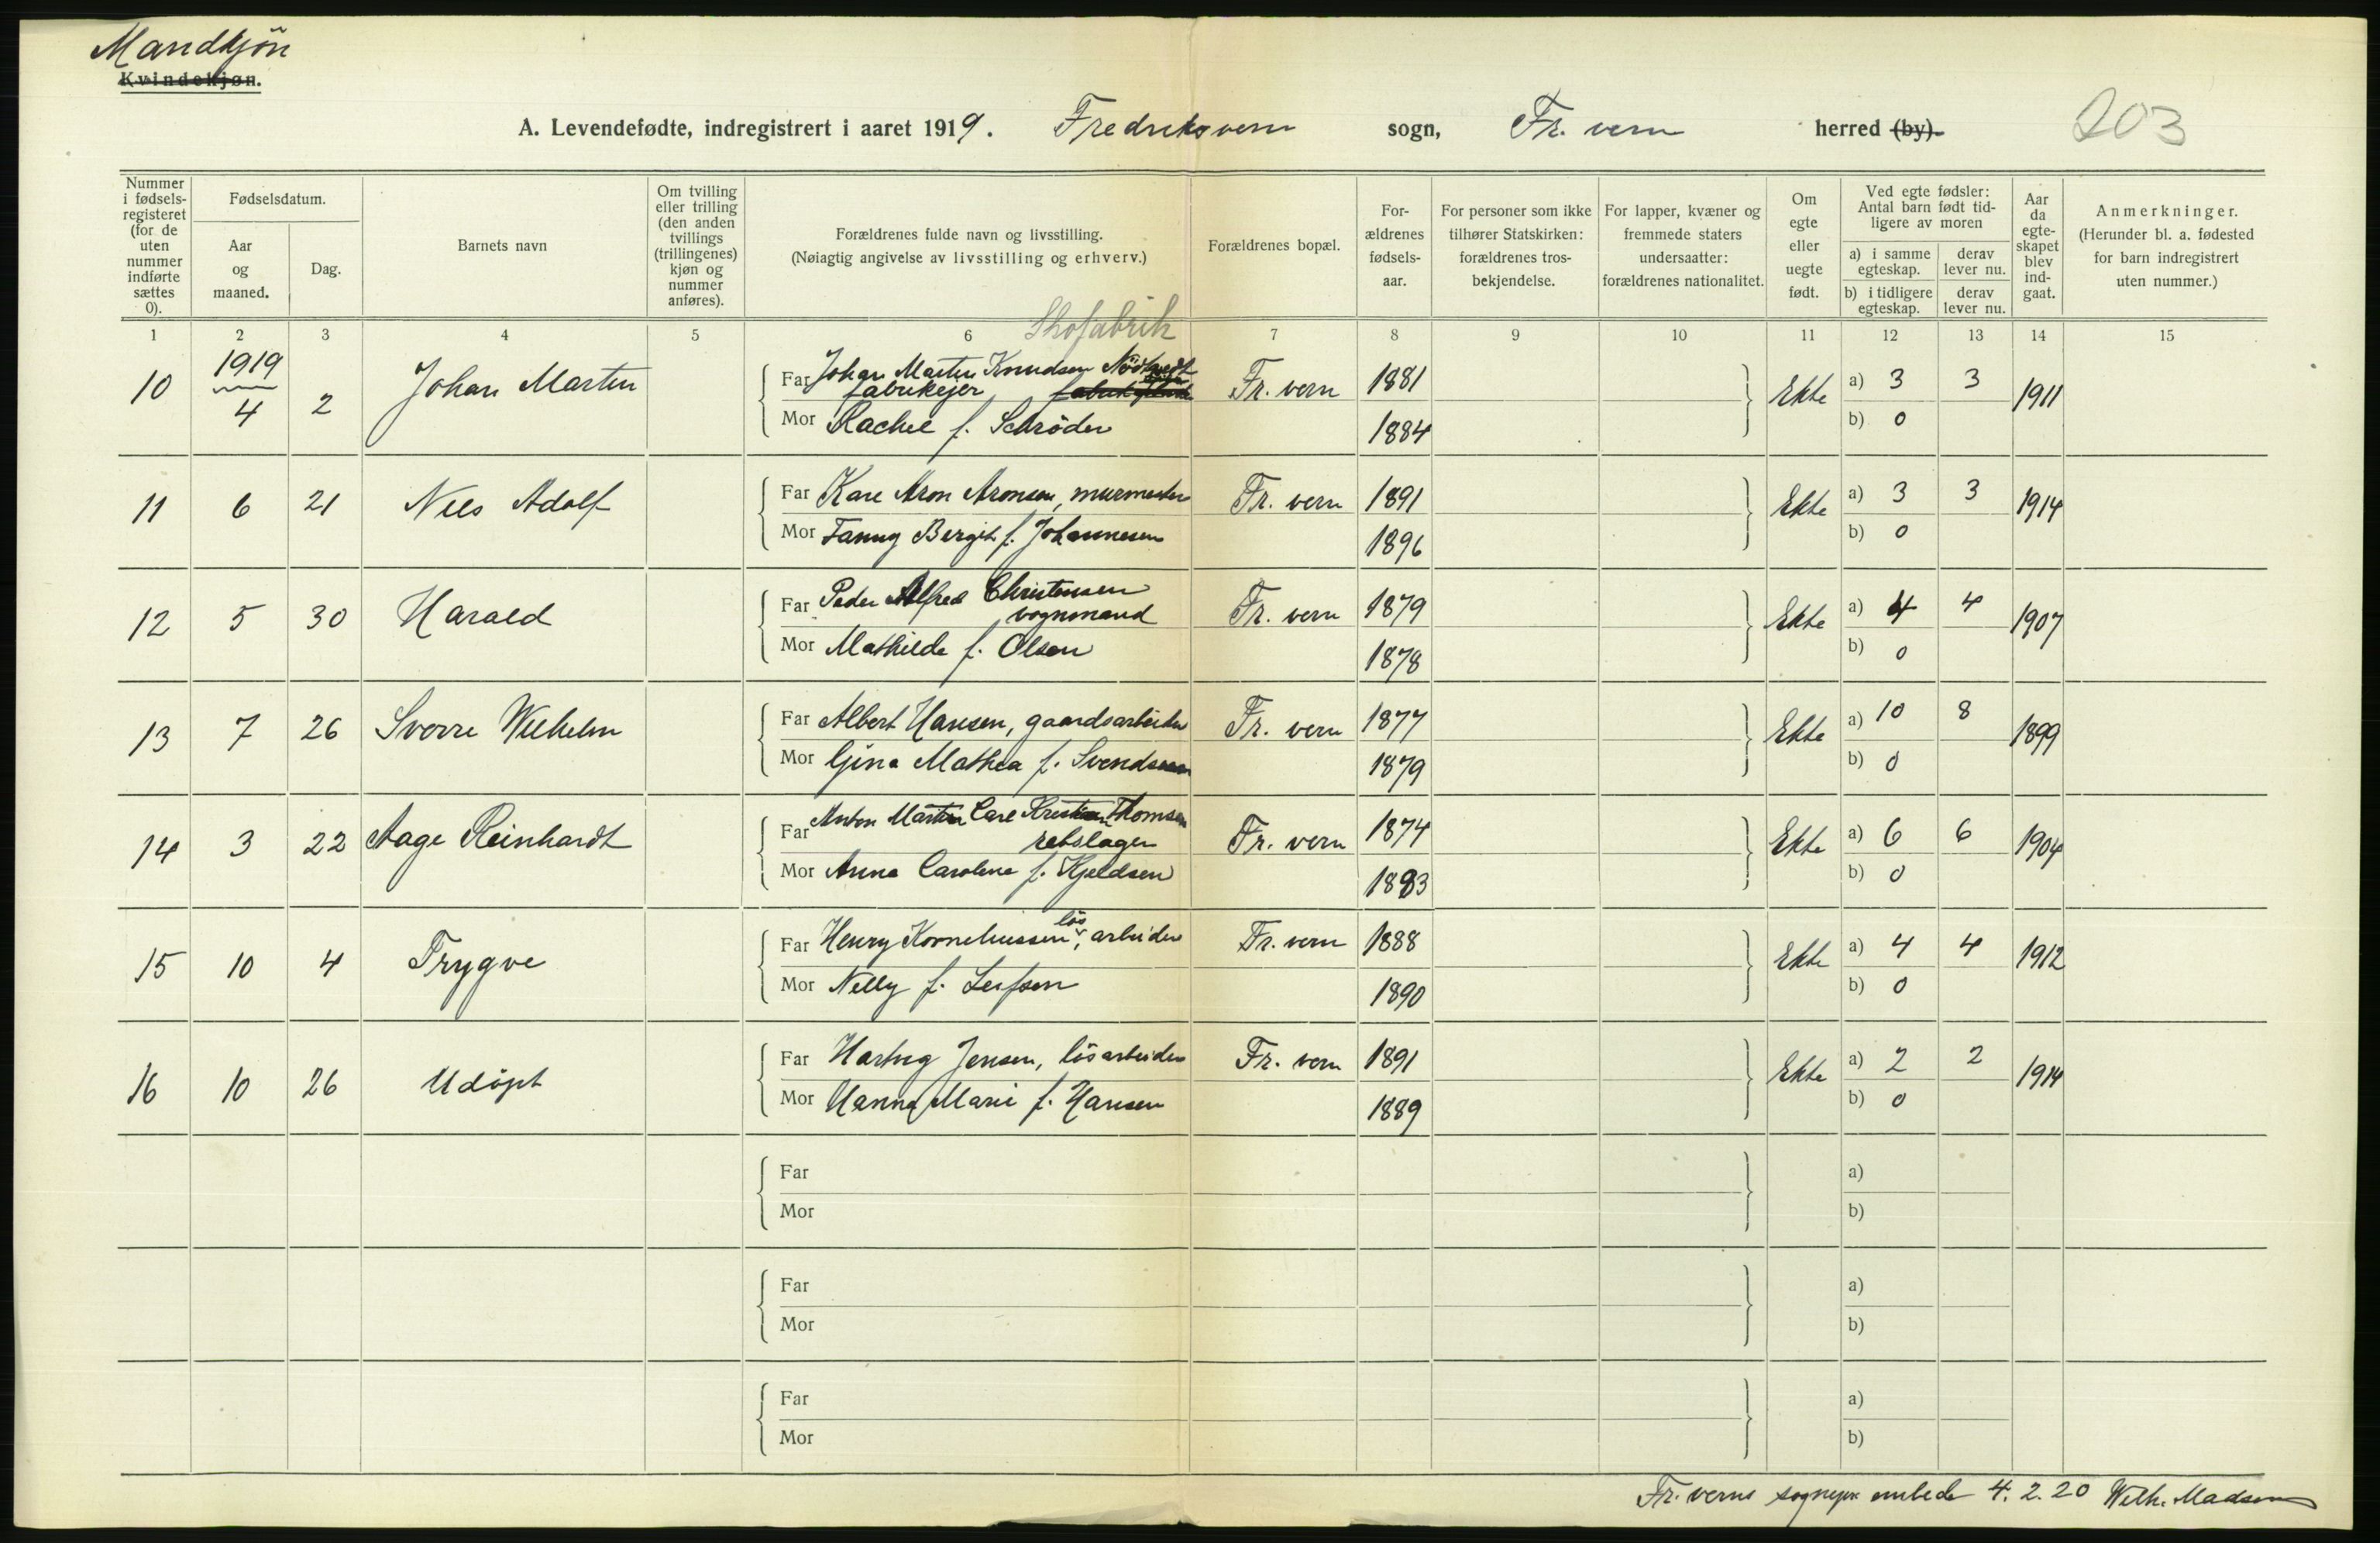 Mandkjön
Kvindekjøn.
A. Levendefødte, indregistrert i aaret 1919. Fredriksvern sogn, Fr. vern herred (by). 203
Nummer i fødselsregisteret (for de uten nummer indførte sættes 0).
Fødselsdatum.
Aar og maaned.
Dag.
Barnets navn
Om tvilling eller trilling (den anden tvillings (trillingenes) kjøn og nummer anføres).
Forældrenes fulde navn og livsstilling.
(Nøiagtig angivelse av livsstilling og erhverv.)
Forældrenes bopæl.
Forældrenes fødselsaar.
For personer som ikke tilhører Statskirken: forældrenes trosbekjendelse.
For lapper, kvæner og fremmede staters undersaatter: forældrenes nationalitet.
Om egte eller uegte født.
Ved egte fødsler: Antal barn født tidligere av moren
a) i samme egteskap. derav lever nu.
b) i tidligere egteskap. derav lever nu.
Aar da egteskapet blev indgaat.
Anmerkninger.
(Herunder bl. a. fødested for barn indregistrert uten nummer.)
1 2 3 4 5 6 7 8 9 10 11 12 13 14 15
Skofabrik
10 1919 4 2 Johan Martin Far Johan Martin Knudsen Nödtvedt fabrikejer Fr. vern 1881 Ekte a) 3 3 1911
Mor Rachel f. Schrøder 1884 b) 0
11 6 21 Nils Adolf Far Karl Aron Aronsen, murmester Fr. vern 1891 Ekte a) 3 3 1914
Mor Fanny Bergit f. Johannesen 1896 b) 0
12 5 30 Harald Far Peder Alfred Christensen vognmand Fr. vern 1879 Ekte a) 4 4 1907
Mor Mathilde f. Olsen 1878 b) 0
13 7 26 Sverre Wilhelm Far Albert Hansen, gaardsarbeider Fr. vern 1877 Ekte a) 10 8 1899
Mor Gina Mathea f. Svendsen 1879 b) 0
14 3 22 Aage Reinhardt Far Anton Martin Carl Kristian Thomsen rebslager Fr. vern 1874 Ekte a) 6 6 1904
Mor Anna Caroline f. Kjeldsen 1883 b) 0
15 10 4 Trygve Far Henry Korneliussen, lös arbeider Fr. vern 1888 Ekte a) 4 4 1912
Mor Nelly f. Leifsen 1890 b) 0
16 10 26 Udöpt Far Hartvig Jensen, lösarbeider Fr. vern 1891 Ekte a) 2 2 1914
Mor Hanna Marie f. Hansen 1889 b) 0
Far a)
Mor b)
Far a)
Mor b)
Far a)
Mor b)
Fr. verns sognepr. embede 4. 2. 20 Wilh. Madsen